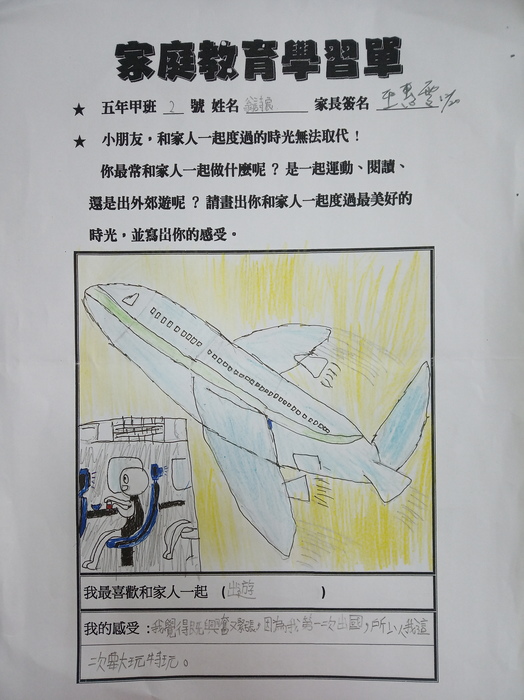 家庭教育學習單
★ 五年甲班 2 號 姓名 家長簽名 王 雲 12/20
★ 小朋友，和家人一起度過的時光無法取代！
你最常和家人一起做什麼呢？是一起運動、閱讀、
還是出外郊遊呢？請畫出你和家人一起度過最美好的
時光，並寫出你的感受。
我最喜歡和家人一起 (出遊)
我的感受：我覺得既興奮又緊張，因為我第一次出國，所以我這
次要大玩特玩。